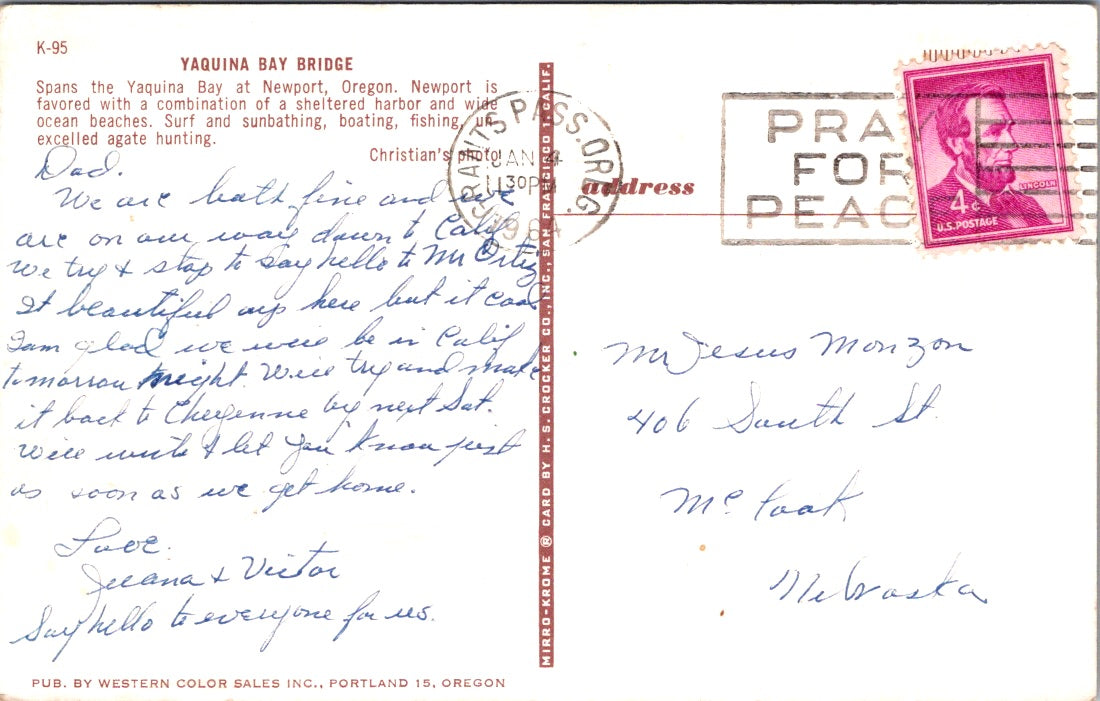 K-95
YAQUINA BAY BRIDGE
Spans the Yaquina Bay at Newport, Oregon. Newport is
favored with a combination of a sheltered harbor and wide
ocean beaches. Surf and sunbathing, boating, fishing, un-
excelled agate hunting.
Christian's photo
Dad.
We are both fine and we
are on our way down to Calif
we try & stop to say hello to Mr Ortiz
It beautiful up here but it cool
I am glad we will be in Calif
tomorrow night. Will try and make
it back to Cheyenne by next Sat.
Will write & let you know just
as soon as we get home.
Love.
Juana & Victor
Say hello to everyone for us.
PUB. BY WESTERN COLOR SALES INC., PORTLAND 15, OREGON
MIRRO-KROME ® CARD BY H. S. CROCKER CO., INC., SAN FRANCISCO 1, CALIF.
GRANTS PASS, OREG.
JAN 4
1130PM
1964
address
PRAY
FOR
PEACE
LINCOLN
4¢
U.S. POSTAGE
Mr Jesus Monzon
406 South St.
Mc Cook
Nebraska